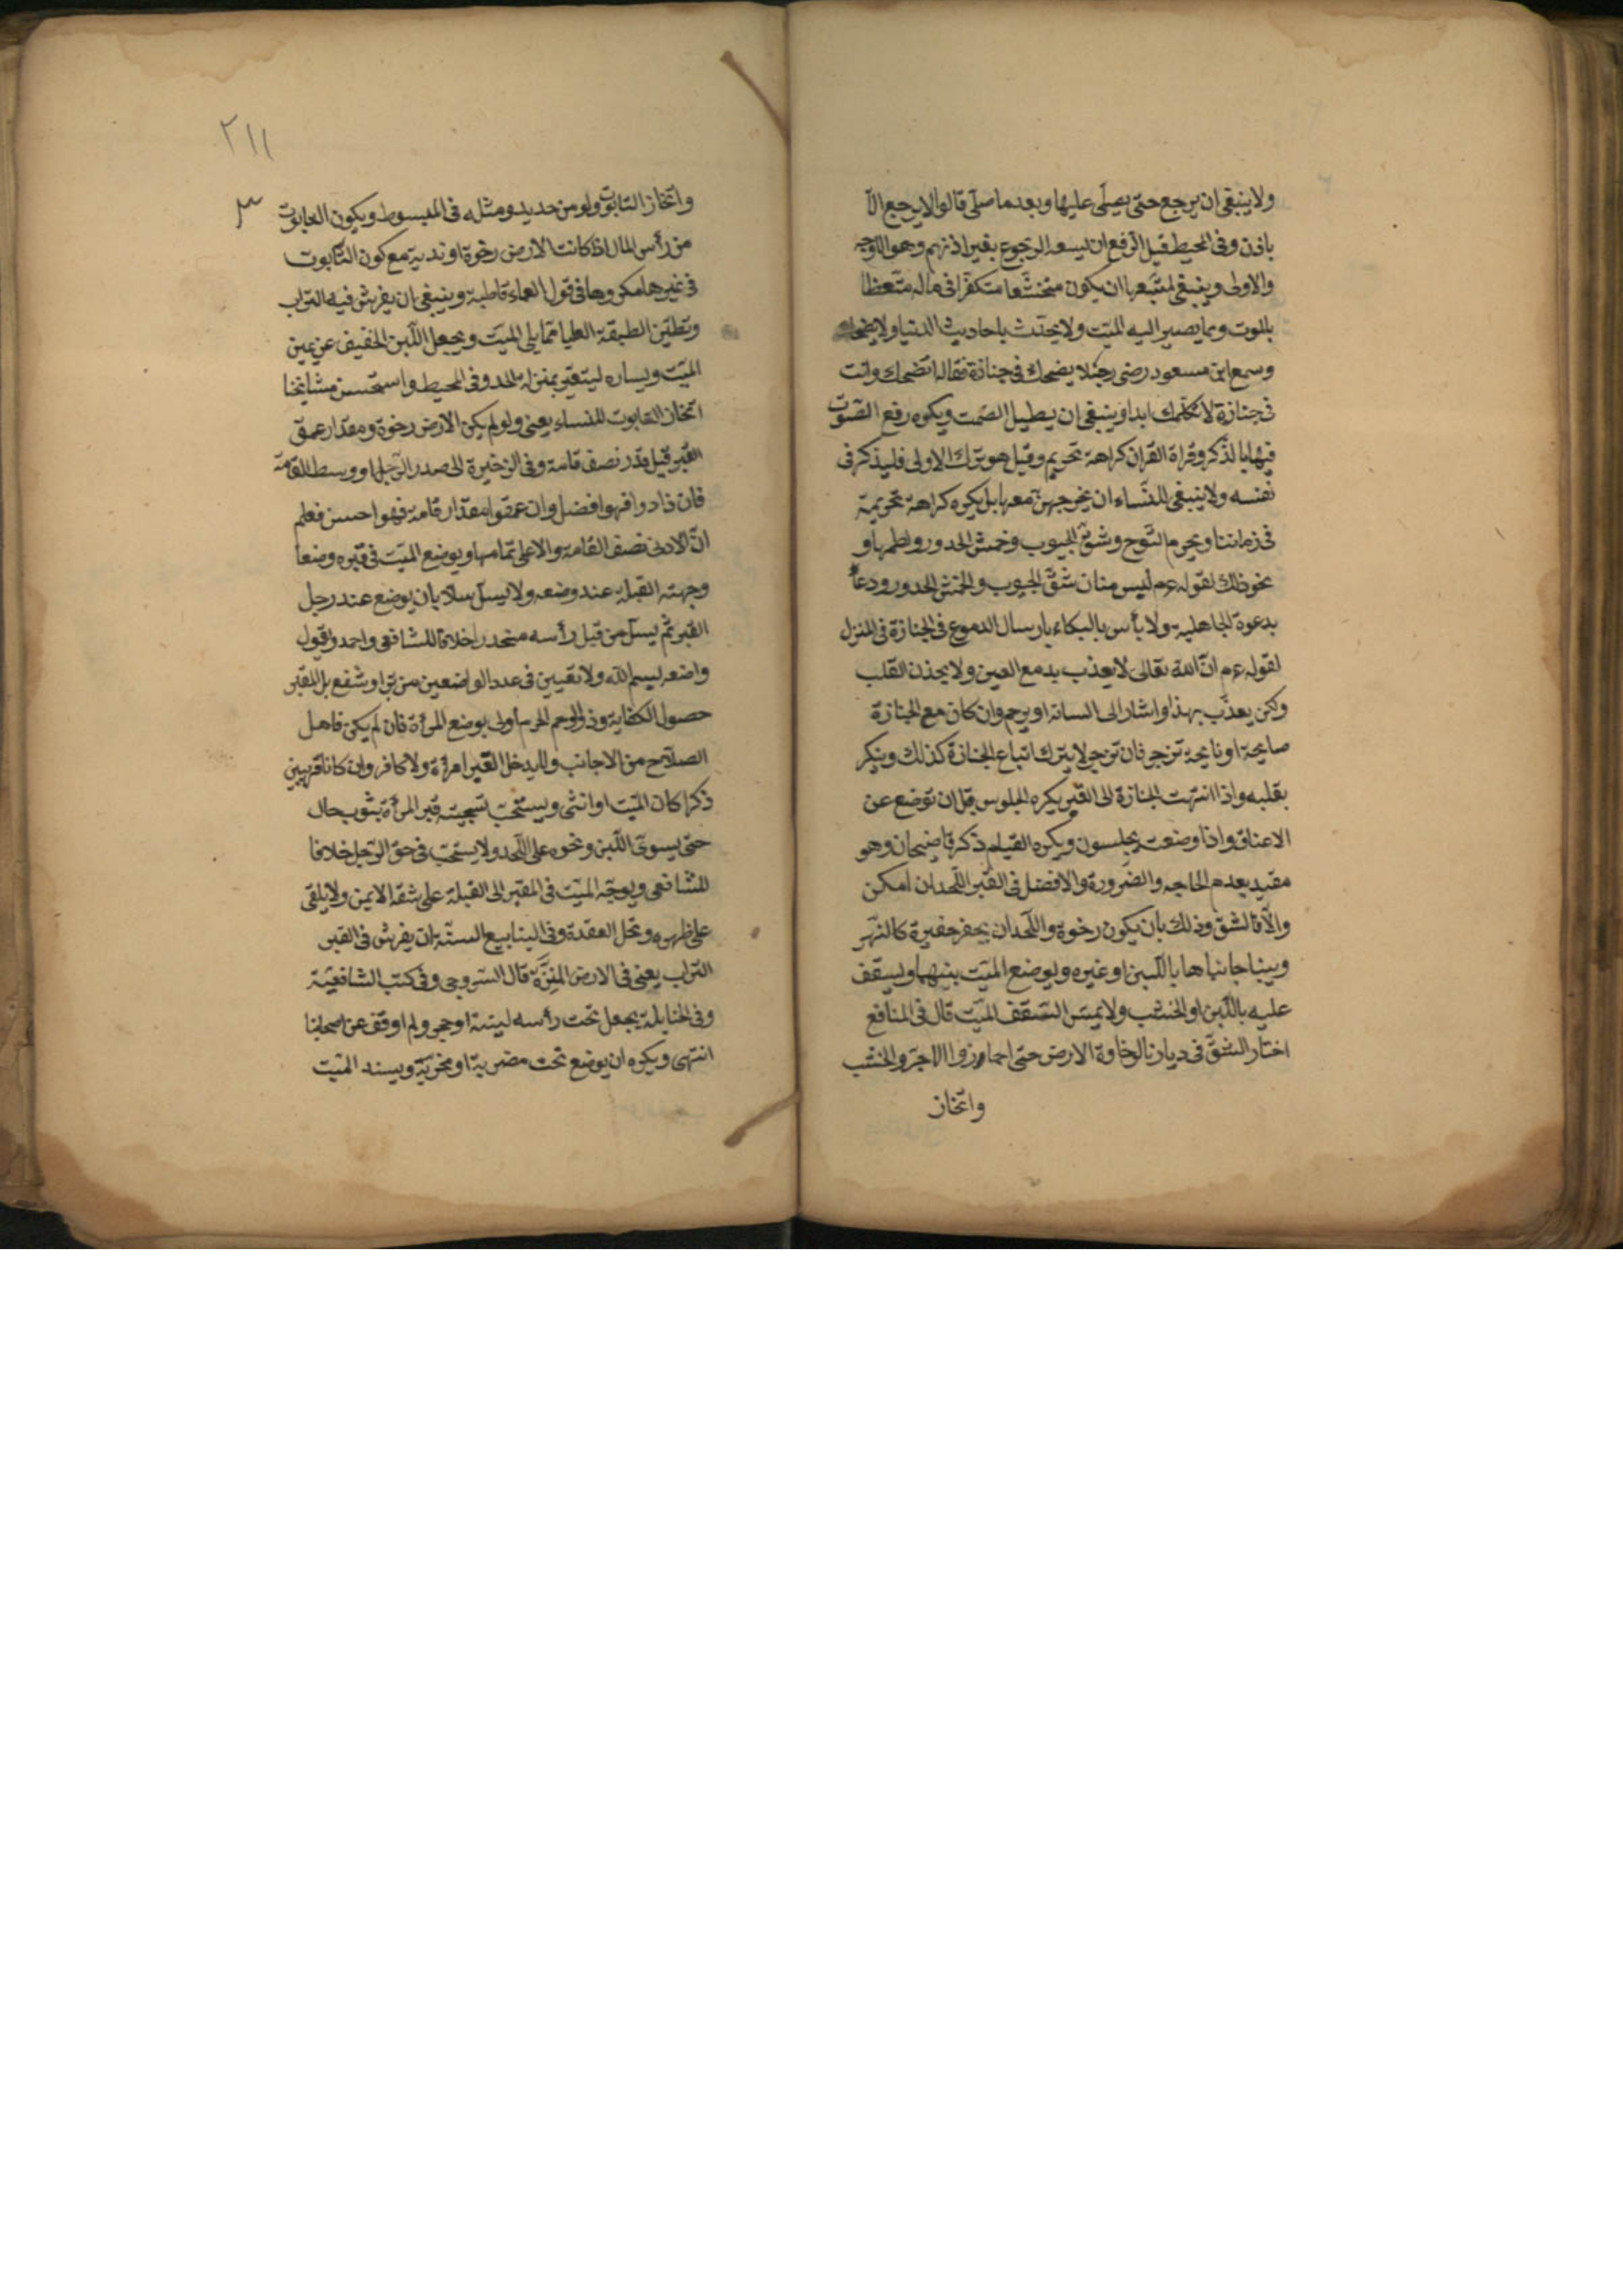 ولا ينبغى ان يرجع حتى يصلى عليها وبعد ما صلى قالوا لا يرجع الا
باذن وفى المحيط قيل الرفع ان يسعه الرجوع بغير اذنهم وهو الاوجه
والاولى وينبغى لمتبعها ان يكون متخشعا متكفرا فى ماله متعظا
بالموت وبما يصير اليه الميت ولا يحدث باحاديث الدنيا ولا يضحك
وسمع ابن مسعود رضى رجلا يضحك فى جنازة فقاله اتضحك وانت
فى جنازة لا كلمك ابدا وينبغى ان يطيل الصمت ويكره رفع الصوت
فيها بالذكر وقراة القران كراهة تحريم وقيل هو ترك الاولى فليذكر فى
نفسه ولا ينبغى للنساء ان يخرجهن معها بل يكره كراهة تحريمية
فى زماننا ويحرم النوح وشق الجيوب وخمش الخدور ولطمها و
نحو ذلك لقوله عم ليس منا من شق الجيوب والخمش الخدور ودعا
بدعوة الجاهلية ولا بأس بالبكاء بارسال الدموع فى الجنازة فى المنزل
لقوله عم ان الله تعالى لا يعذب بدمع العين ولا يحذن القلب
ولكن يعذب بهذا واشار الى لسانه او يرحم وان كان مع الجنازة
صايحة او نايحة تزجر فان تزجر لا يترك اتباع الجنازة كذلك وينكر
بقلبه واذا انتهت الجنازة الى القبر يكره الجلوس قبل ان توضع عن
الاعناق واذا وضعت يجلسون ويكره القيام ذكر قاضيخان وهو
مقيد بعدم الحاجه والضرورة والافضل فى القبر اللحد ان امكن
والا فالشق وذلك بان يكون رخوة واللحد ان يحفر حفيرة كالنهر
ويبنا جانباها باللبن او غيره ويوضع الميت بينهما ويسقف
عليه باللبن او الخشب ولا يمس السقف الميت قال فى المنافع
اختار الشق فى ديارنا لرخاوة الارض حتى اجازوا الاجر والخشب
واتخاز
٢١١
واتخاز التابوت ولو من حديد ومثله فى المبسوط ويكون التابوت
من رأس المال اذا كانت الارض رخوة او ندية مع كون التابوت
فى غيرها مكروها فى قول العلماء قاطبة وينبغى ان يفرش فيه التراب
وتطين الطبقة العليا مما يلى الميت ويجعل اللبن الخفيف عن يمين
الميت ويساره ليتقير بمنزلة للحد وفى المحيط واستحسن مشايخنا
اتخاز التابوت للنساء يعنى ولو لم يكن الارض رخوة ومقدار عمق
القبر قيل قدر نصف قامة وفى الزخيرة الى صدر الرجل او وسط القامة
فان زادوا فهو افضل وان عمقوا مقدار قامة فهو احسن فعلم
ان الادنى نصف القامة والاعلى تمامها ويوضع الميت فى قبره وضعا
وجهته القبلة عند وضعه ولا يسل سلا بان يوضع عند رجل
القبر ثم يسل من قبل رأسه منحدرا خلافا للشافعى واحمد ويقول
واضعه بسم الله ولا تعيين فى عدد الواضعين من وتر او شفع بل المقبر
حصول الكفاية وذو الرحم المحرم اولى بوضع المرأة فان لم يكن فاهل
الصلاح من الاجانب ولا يدخل القبر امرأة ولا كافر وان كانا قريبين
ذكرا كان الميت او انثى ويستحب تسجيته قبر المرأة بثوب حال
حتى يسوى اللبن ونحوه على اللحد ولا يستحب فى حق الرجل خلافا
للشافعى ويوجه الميت فى القبر الى القبلة على شقه الايمن ولا يلقى
على ظهره وتحل العقدة وفى الينابيع السنة ان يفرش فى القبر
التراب يعنى فى الارض النزة قال السروجى وفى كتب الشافعية
وفى الحنابلة يجعل تحت رأسه لبنة او حجر ولم اوقف عن اصحابنا
انتهى ويكره ان يوضع تحت مضربة او مخربة ويسند الميت